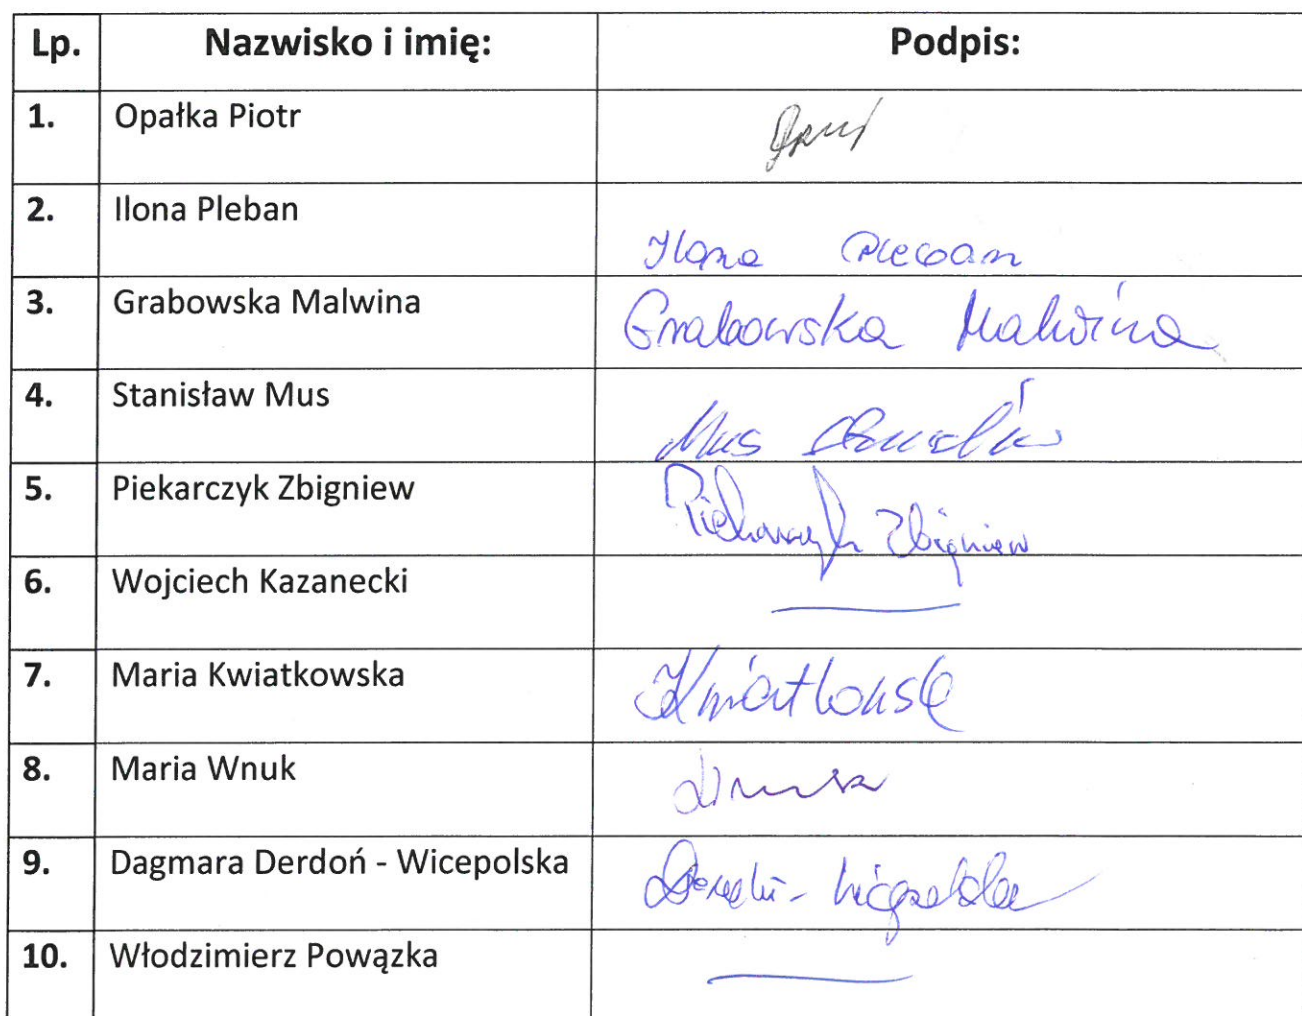 Lp. Nazwisko i imię: Podpis:
1. Opałka Piotr
2. Ilona Pleban Ilona Pleban
3. Grabowska Malwina Grabowska Malwina
4. Stanisław Mus Mus Stanisław
5. Piekarczyk Zbigniew Piekarczyk Zbigniew
6. Wojciech Kazanecki
7. Maria Kwiatkowska
8. Maria Wnuk Wnuk
9. Dagmara Derdoń - Wicepolska
10. Włodzimierz Powązka